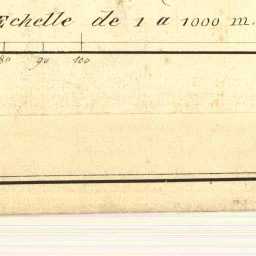 Echelle de 1 a 1000 m.
80 90 100